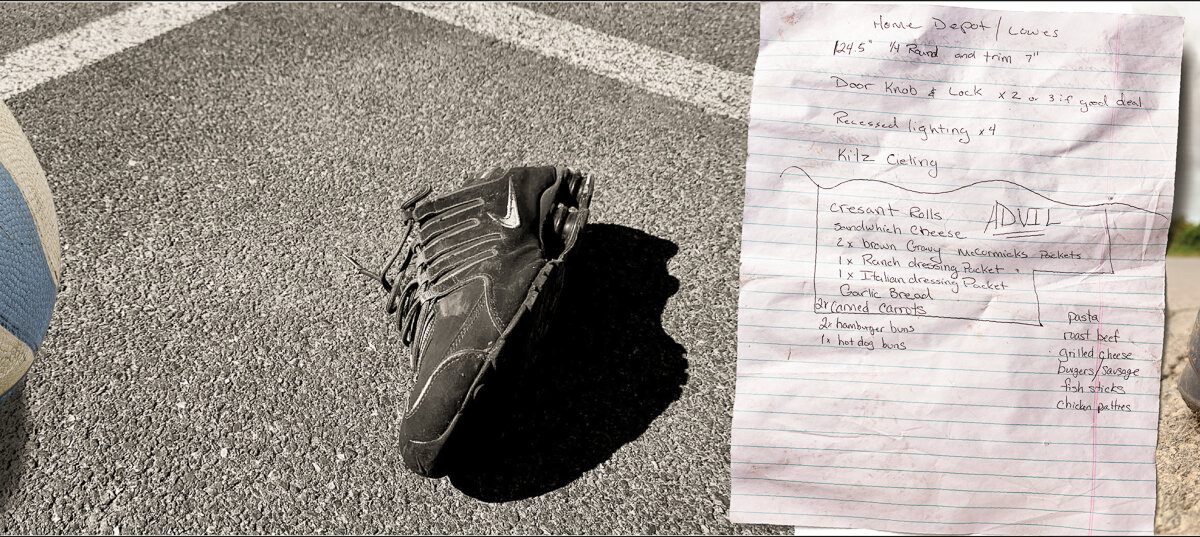 Home Depot/Lowes
124.5" 1/4 Round and trim 7"
Door Knob & Lock x 2 or 3 if good deal
Recessed lighting x4
Kilz Cieling
ADVIL
cresant Rolls
sandwhich cheese
2x brown Gravy McCormicks Packets
1x Ranch dressing Packet
1x Italian dressing Packet
Garlic Bread
2x canned carrots
2x hamburger buns
1x hot dog buns
pasta
roast beef
grilled cheese
burgers/sausage
fish sticks
chicken patties